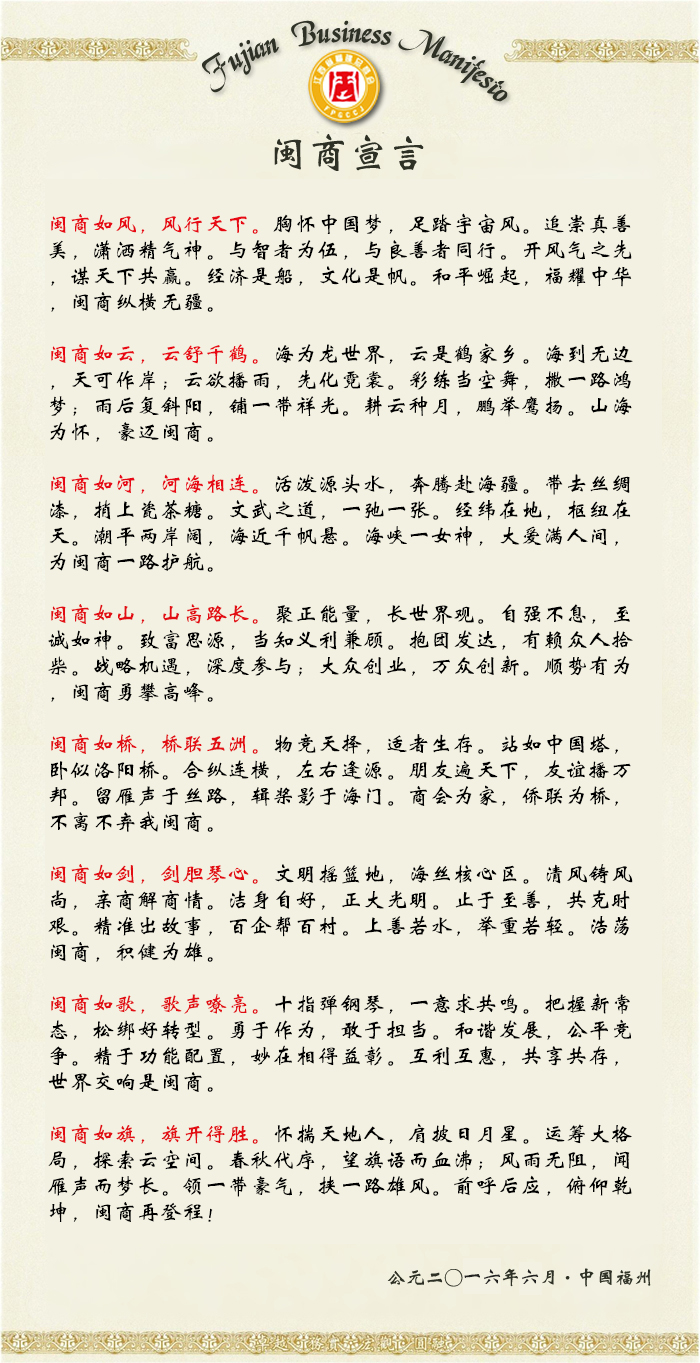 Fujian Business Manifesto
FPGCCJ
闽商宣言
闽商如风，风行天下。胸怀中国梦，足踏宇宙风。追崇真善
美，潇洒精气神。与智者为伍，与良善者同行。开风气之先
，谋天下共赢。经济是船，文化是帆。和平崛起，福耀中华
，闽商纵横无疆。
闽商如云，云舒千鹤。海为龙世界，云是鹤家乡。海到无边
，天可作岸；云欲播雨，先化霓裳。彩练当空舞，撒一路鸿
梦；雨后复斜阳，铺一带祥光。耕云种月，鹏举鹰扬。山海
为怀，豪迈闽商。
闽商如河，河海相连。活泼源头水，奔腾赴海疆。带去丝绸
漆，捎上瓷茶糖。文武之道，一弛一张。经纬在地，枢纽在
天。潮平两岸阔，海近千帆悬。海峡一女神，大爱满人间，
为闽商一路护航。
闽商如山，山高路长。聚正能量，长世界观。自强不息，至
诚如神。致富思源，当知义利兼顾。抱团发达，有赖众人拾
柴。战略机遇，深度参与；大众创业，万众创新。顺势有为
，闽商勇攀高峰。
闽商如桥，桥联五洲。物竞天择，适者生存。站如中国塔，
卧似洛阳桥。合纵连横，左右逢源。朋友遍天下，友谊播万
邦。留雁声于丝路，辑桨影于海门。商会为家，侨联为桥，
不离不弃我闽商。
闽商如剑，剑胆琴心。文明摇篮地，海丝核心区。清风铸风
尚，亲商解商情。洁身自好，正大光明。止于至善，共克时
艰。精准出故事，百企帮百村。上善若水，举重若轻。浩荡
闽商，积健为雄。
闽商如歌，歌声嘹亮。十指弹钢琴，一意求共鸣。把握新常
态，松绑好转型。勇于作为，敢于担当。和谐发展，公平竞
争。精于功能配置，妙在相得益彰。互利互惠，共享共存，
世界交响是闽商。
闽商如旗，旗开得胜。怀揣天地人，肩披日月星。运筹大格
局，探索云空间。春秋代序，望旗语而血沸；风雨无阻，闻
雁声而梦长。领一带豪气，挟一路雄风。前呼后应，俯仰乾
坤，闽商再登程！
公元二〇一六年六月·中国福州